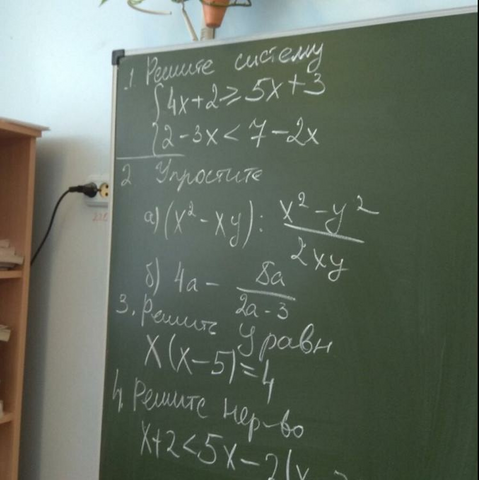 1. Решите систему
{4x+2 ≥ 5x+3
{2-3x < 7-2x
2 Упростите
а) (x² - xy) : (x² - y²)/(2xy)
б) 4a - 8a/(2a-3)
3. Решить Уравн
x(x-5)=4
4. Решите нер-во
x+2<5x-2(x